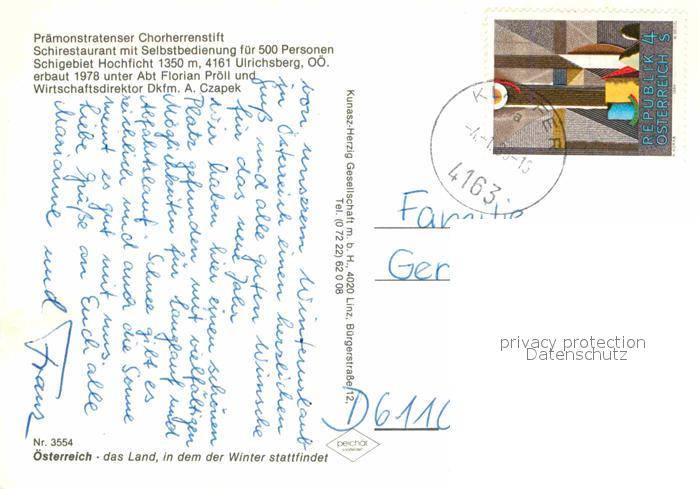 Prämonstratenser Chorherrenstift
Schirestaurant mit Selbstbedienung für 500 Personen
Schigebiet Hochficht 1350 m, 4161 Ulrichsberg, OÖ.
erbaut 1978 unter Abt Florian Pröll und
Wirtschaftsdirektor Dkfm. A. Czapek
von unserem Winterurlaub
in Österreich einen herzlichen
Gruß und alle guten Wünsche
für das neue Jahr
Wir haben hier einen schönen
Platz gefunden mit vielfältigen
Möglichkeiten für Langlauf und
Abfahrtslauf. Schnee gibt es
reichlich und auch die Sonne
meint es gut mit uns.
Liebe Grüße an Euch alle
Marianne und
Franz
Nr. 3554
Österreich - das Land, in dem der Winter stattfindet
Kunasz-Herzig Gesellschaft m. b. H., 4020 Linz, Bürgerstraße 12,
Tel. (0 72 22) 62 0 08
peichär
REPUBLIK 4
ÖSTERREICH S
4163
Familie
Ger
D6110
privacy protection
Datenschutz